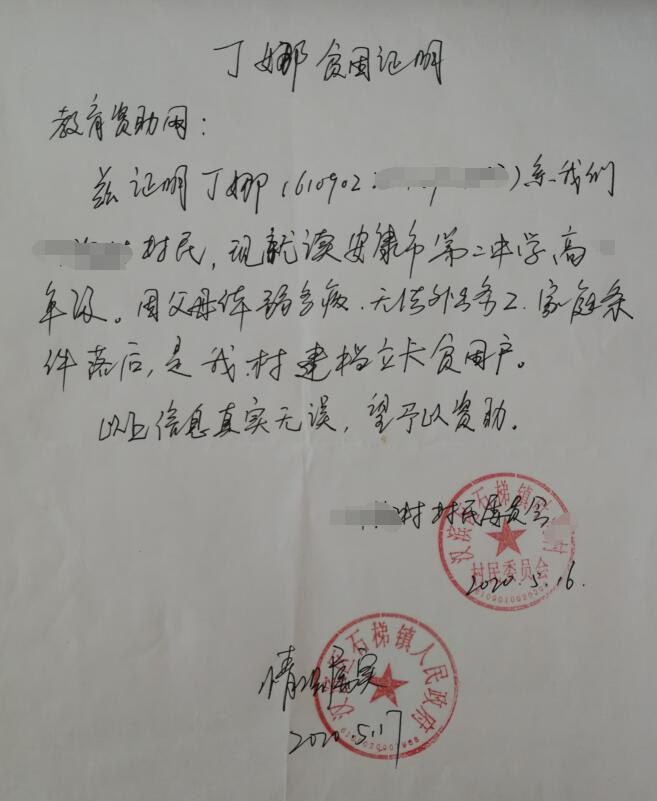 丁娜贫困证明
教育资助网：
兹证明丁娜（610902）系我们
村民，现就读安康市第二中学高
年级。因父母体弱多病、无法外出务工、家庭条
件落后，是我村建档立卡贫困户。
以上信息真实无误，望予以资助。
村村民委员会
汉滨区石梯镇 村
村民委员会
2020.5.16.
情况属实
汉滨区石梯镇人民政府
2020.5.17